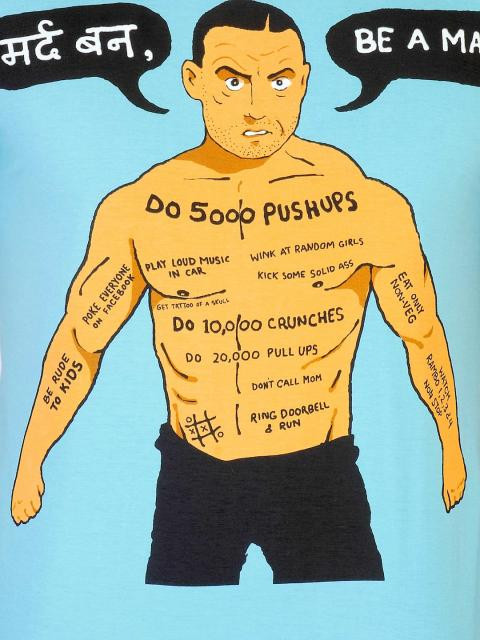 मर्द बन,
BE A MA
DO 5000 PUSHUPS
PLAY LOUD MUSIC
IN CAR
WINK AT RANDOM GIRLS
KICK SOME SOLID ASS
GET TATTOO OF A SKULL
POKE EVERYONE
ON FACEBOOK
EAT ONLY
NON-VEG
DO 10,000 CRUNCHES
DO 20,000 PULL UPS
DON'T CALL MOM
BE RUDE
TO KIDS
WATCH
RAMBO 1,2,3 &4
NON STOP
RING DOORBELL
& RUN